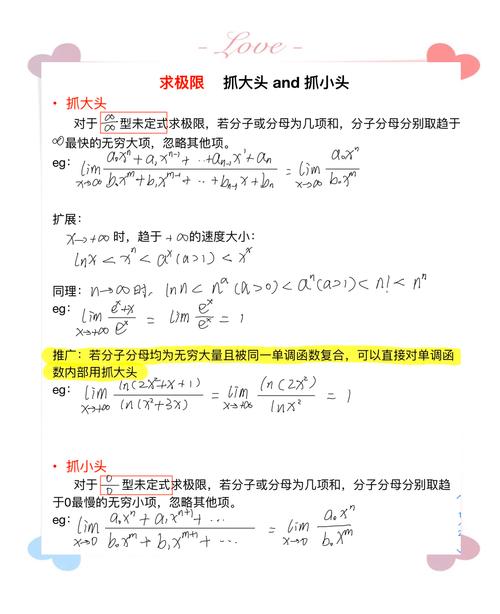 Love
求极限 抓大头 and 抓小头
• 抓大头
对于 ∞/∞ 型未定式求极限，若分子或分母为几项和，分子分母分别取趋于
∞最快的无穷大项，忽略其他项。
eg: lim x→∞ (a₀xⁿ+a₁xⁿ⁻¹+⋯+aₙ₋₁x¹+aₙ)/(b₀xᵐ+b₁xᵐ⁻¹+⋯+bₙ₋₁x+bₙ) = lim x→∞ a₀xⁿ/b₀xᵐ
扩展:
x→+∞ 时，趋于+∞的速度大小:
lnx < xⁿ < aˣ(a>1) < xˣ
同理: n→∞ 时, ln n < nᵃ (a>0) < aⁿ(a>1) < n! < nⁿ
eg: lim x→+∞ (eˣ+x)/eˣ = lim eˣ/eˣ = 1
推广: 若分子分母均为无穷大量且被同一单调函数复合，可以直接对单调函
数内部用抓大头
eg: lim x→+∞ ln(2x²+x+1)/ln(x²+3x) = lim x→+∞ ln(2x²)/lnx² = 1
• 抓小头
对于 0/0 型未定式求极限，若分子或分母为几项和，分子分母分别取趋
于0最慢的无穷小项，忽略其他项。
eg: lim x→0 (a₀xⁿ+a₁xⁿ⁺¹+⋯)/(b₀xᵐ+b₁xᵐ⁺¹+⋯) = lim x→0 a₀xⁿ/b₀xᵐ